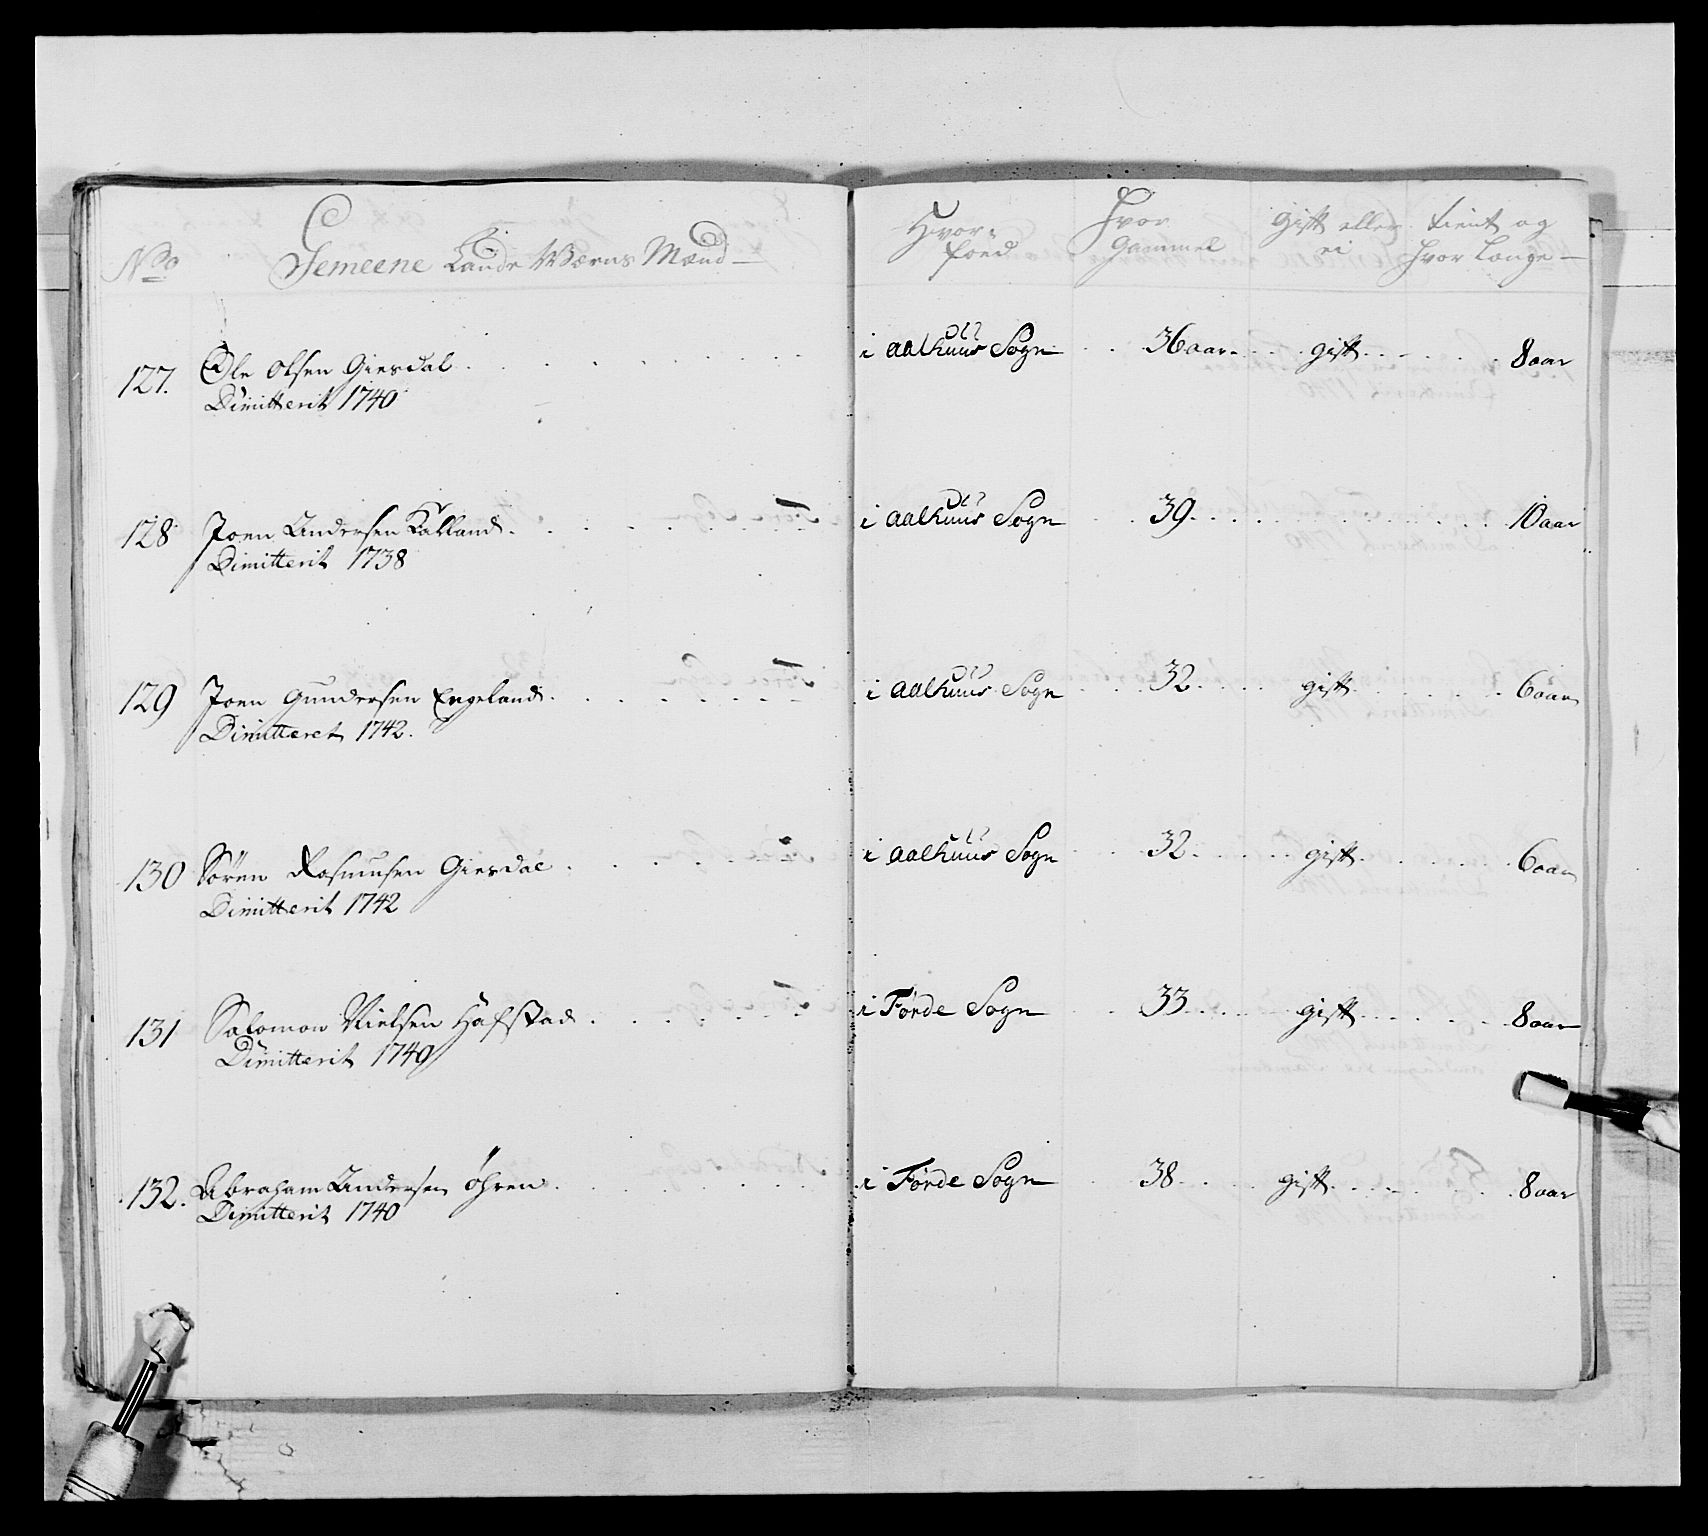 No Gemeene Lands Værns Mænd Hvor- Hvor Gift eller tient og
föed gammel ei hvor Længe
127. Ole Olsen Giesdal i aalhuus Sogn 36 aar gift 8 aar
Dimitterit 1740
128 Joen Andersen Kalland i aalhuus Sogn 39 10 aar
Dimitterit 1738
129 Joen Gundersen Engeland i aalhuus Sogn 32 gift 6 aar
Dimitteret 1742.
130 Sören Rasmusen Giesdal i aalhuus Sogn 32 gift 6 aar
Dimitterit 1742
131 Salomon Nielsen Hafstad i Førde Sogn 33 gift 8 aar
Dimitterit 1740
132. Abraham Andersen öhren i Førde Sogn 38 gift 8 aar
Dimitterit 1740